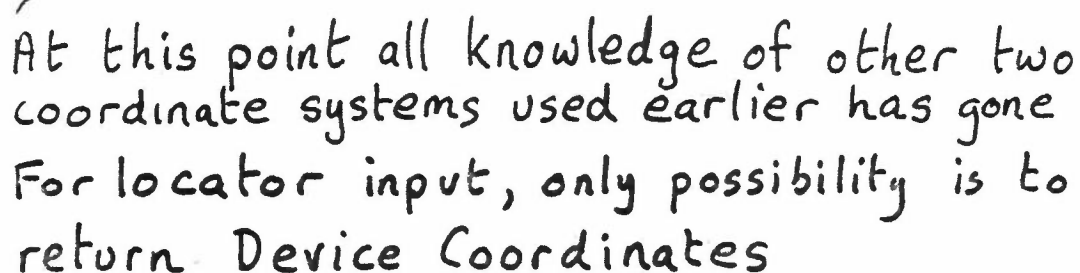 At this point all knowledge of other two
coordinate systems used earlier has gone
For locator input, only possibility is to
return Device Coordinates